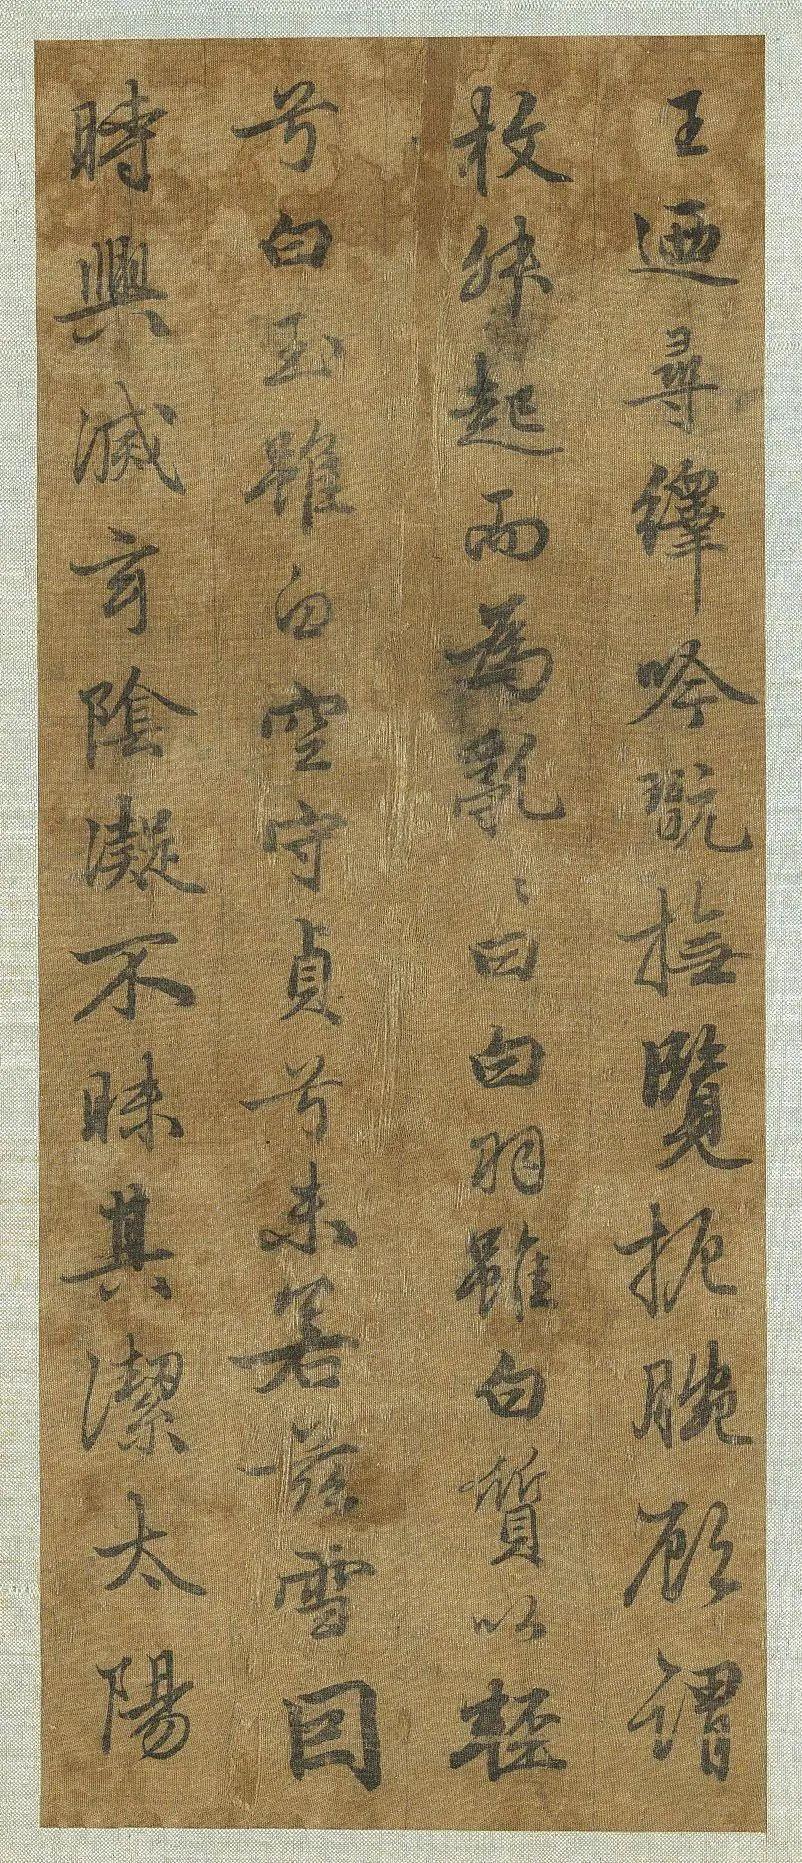 王迺尋繹吟翫撫覽扼腕顧謂
枚叔起而為亂〻曰白羽雖白質以輕
兮白玉雖白空守貞兮未若茲雪因
時興滅玄陰凝不昧其潔太陽